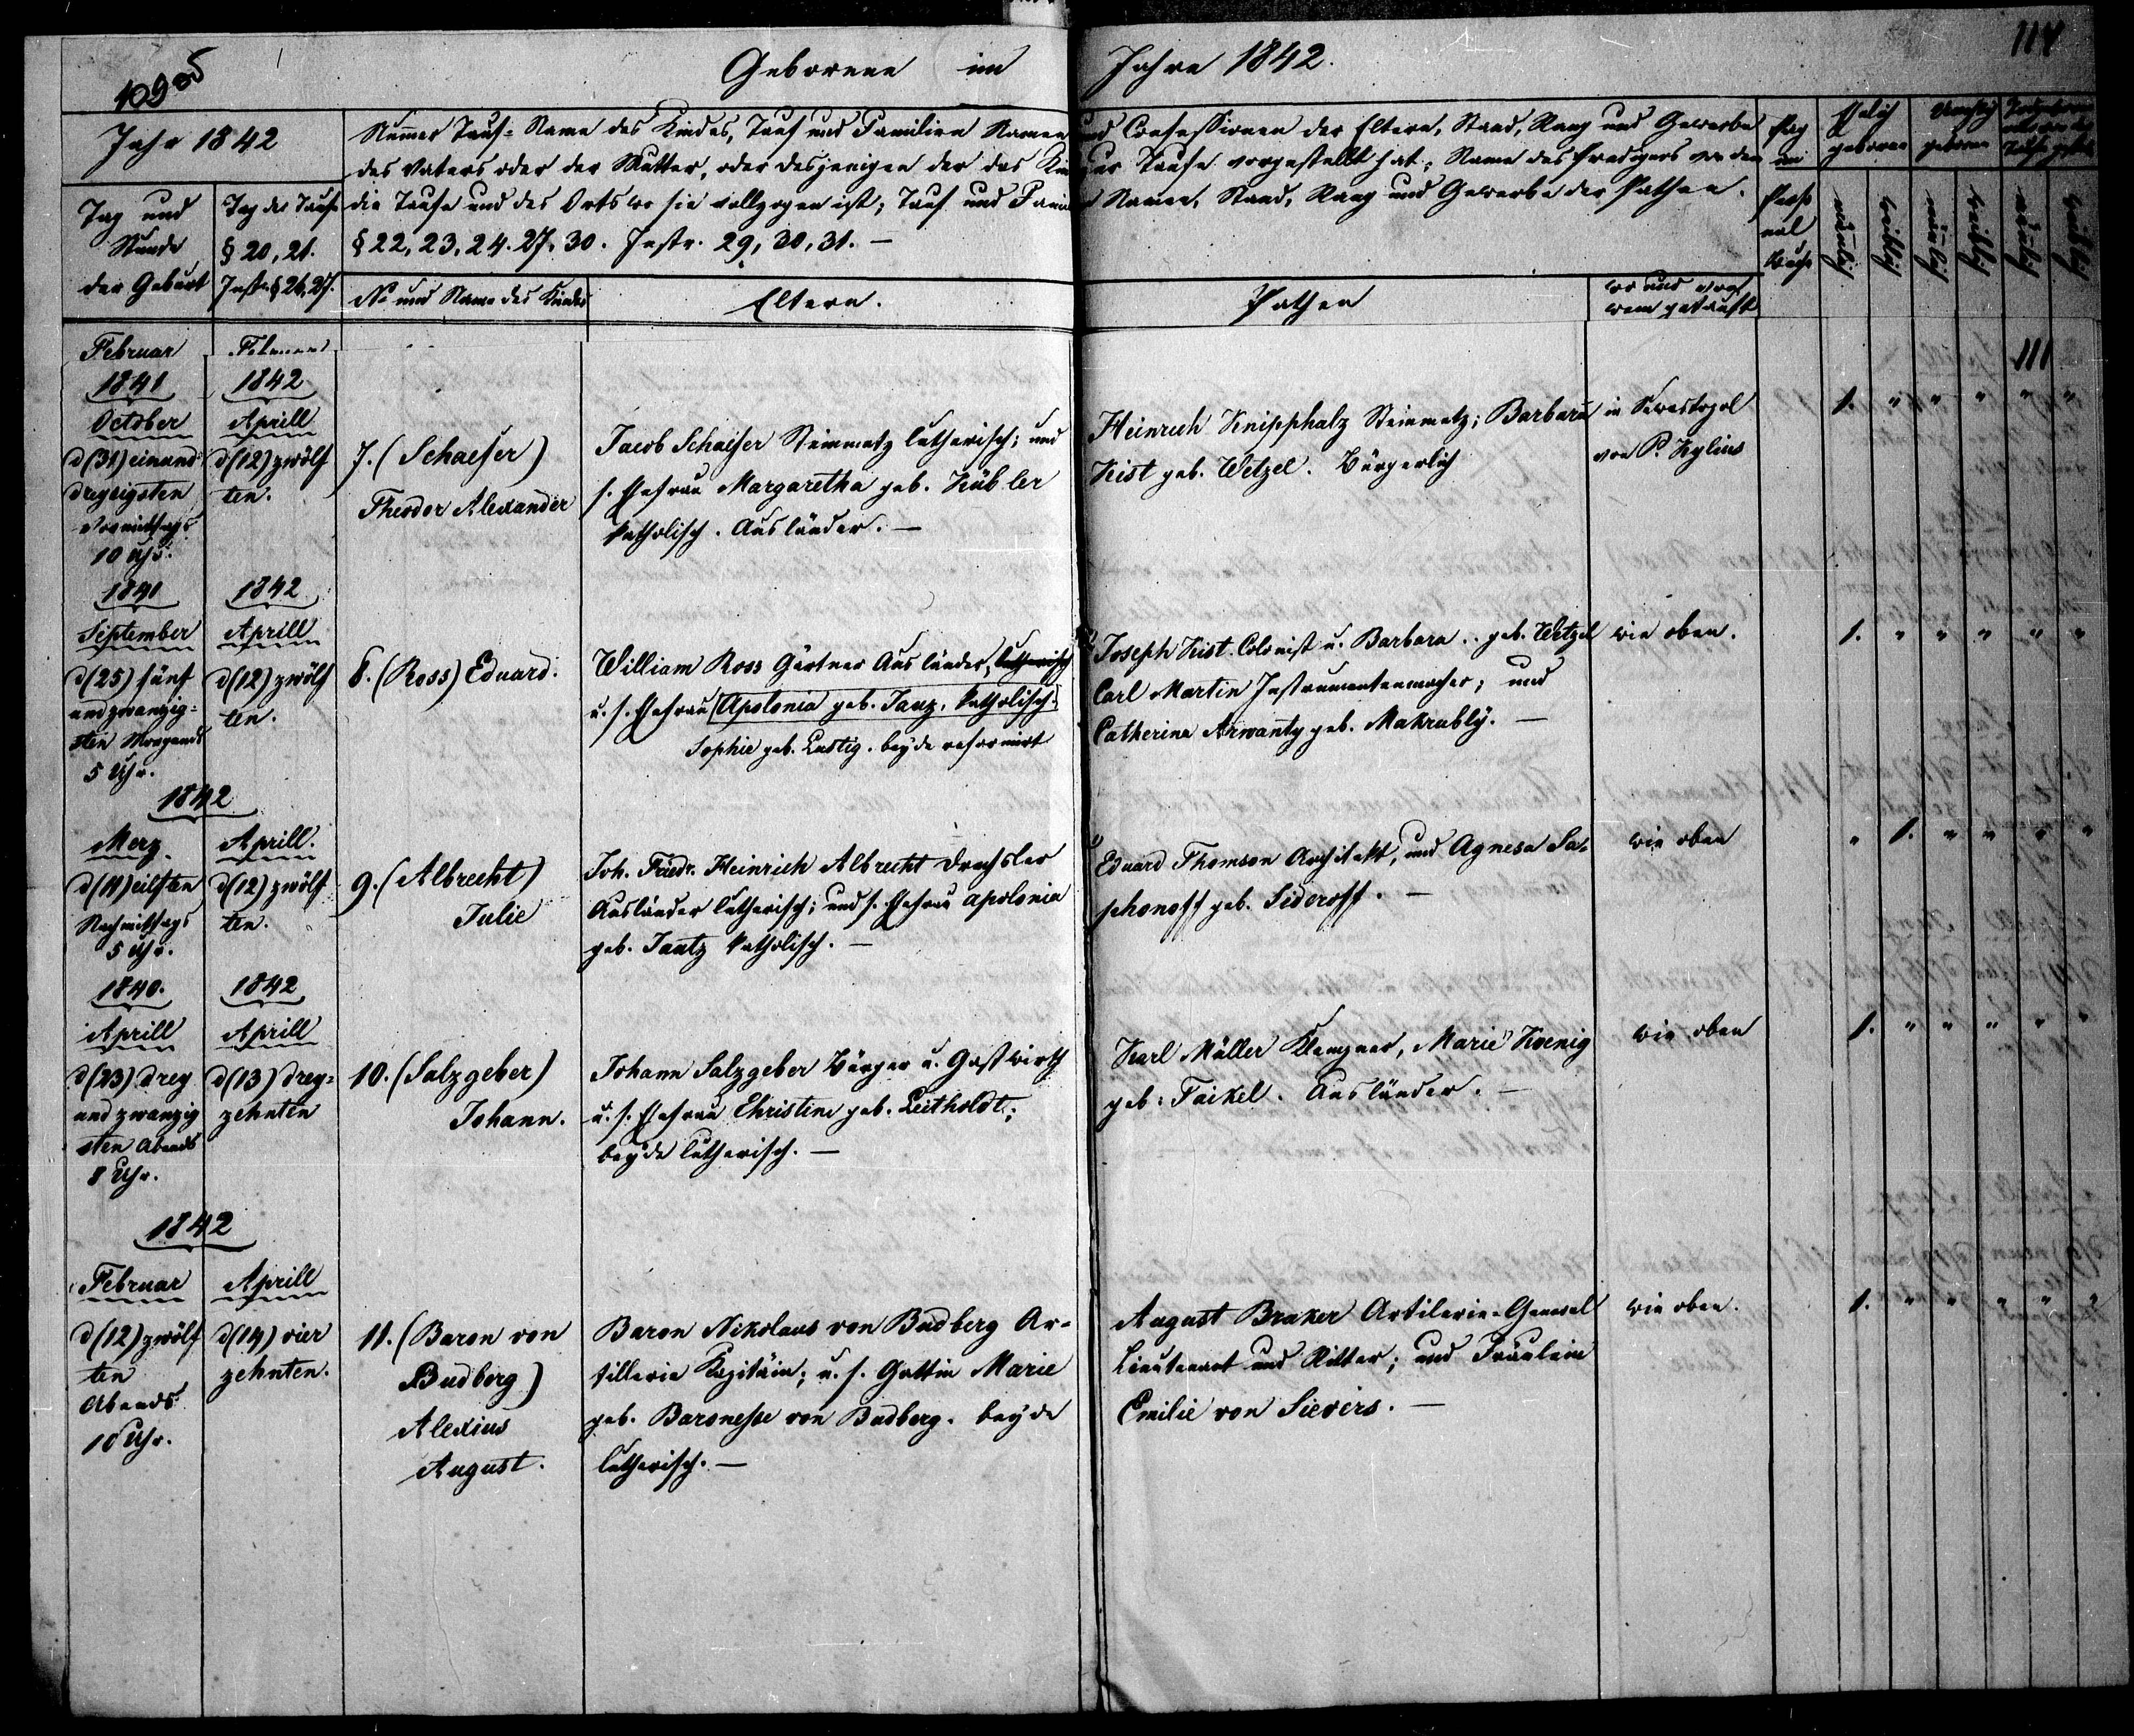 Geborene im Jahre 1842.
114
Jahr 1842
Tag und
Stunde
der Geburt
Tag der Taufe
§ 20, 21.
Instr. § 26, 27.
Numer Tauf-Name des Kindes, Tauf und Familien Namen und Confessionen der Eltern, Stand, Rang und Gewerbe
des Vaters oder der Mutter, oder desjenigen der das Kind zur Taufe vorgestellt hat; Name des Predigers
die Taufe und des Orts wo sie vollzogen ist; Tauf und Namen, Stand, Rang und Gewerbe der Pathen.
§ 22, 23, 24. 27. 30. Instr. 29, 30, 31. —
No und Name des Kindes
Eltern.
Pathen
wo und von
wem getauft
Pag
im
Buch
geboren
geboren
männlich
weiblich
männlich
weiblich
männlich
weiblich
Februar
Februar
111
1841
October
d (31) einund
dreysigsten
Vormittags
10 Uhr.
1842
Aprill
d (12) zwölf
ten.
7. (Schaefer)
Theodor Alexander
Jacob Schaefer Steinmetz lutherisch; und
s. Ehefrau Margaretha geb. Kübler
katholisch. Ausländer. —
Heinrich Knipphalz Steinmetz; Barbara
Kist geb. Wetzel. Bürgerlich
in Sewastopol
von P. Kylius
1. " " " " "
1841
September
d (25) fünf
und zwanzig-
sten Morgends
5 Uhr.
1842
Aprill
d (12) zwölf
ten.
8. (Ross) Eduard.
William Ross Gärtner Ausländer, lutherisch
u. s. Ehefrau Apolonia geb. Tanz, katholisch.
Sophie geb. Lustig. beyde reformirt
Joseph Kist Colonist u. Barbara .. geb. Wetzel
Carl Martin Instrumentenmacher; und
Catherina Arwanty geb. Makrubly. —
wie oben.
1. " " " " "
1842
Merz
d (11) eilften
Nachmittags
5 Uhr.
Aprill.
d (12) zwölf
ten.
9. (Albrecht)
Julie
Joh. Friedr. Heinrich Albrecht Drechsler
Ausländer lutherisch; und s. Ehefrau Apolonia
geb. Tantz katholisch. —
Eduard Thomson Architekt, und Agnesa Sa-
phonoff geb. Sideroff. —
wie oben
" 1. " " " "
1840.
Aprill
d (23) drey
und zwanzig
sten Abends
8 Uhr.
1842
Aprill
d (13) drey-
zehnten
10. (Salzgeber)
Johann.
Johann Salzgeber Bürger u. Gastwirth
u. s. Ehefrau Christine geb. Leitholdt;
beyde lutherisch. —
Karl Müller Klempner, Marie Koenig
geb. Faikel. Ausländer. —
wie oben
1. " " " " "
1842
Februar
d (12) zwölf
ten
Abends
10 Uhr.
Aprill
d (14) vier
zehnten.
11. (Baron von
Budberg)
Alexius
August.
Baron Nikolaus von Budberg Ar-
tillerie Kapitäin; u. s. Gattin Marie
geb. Baronesse von Budberg. beyde
lutherisch. —
August Braker Artilerie-General
Lieutenant und Ritter; und Fräulein
Emilie von Sievers. —
wie oben.
1. " " " " "